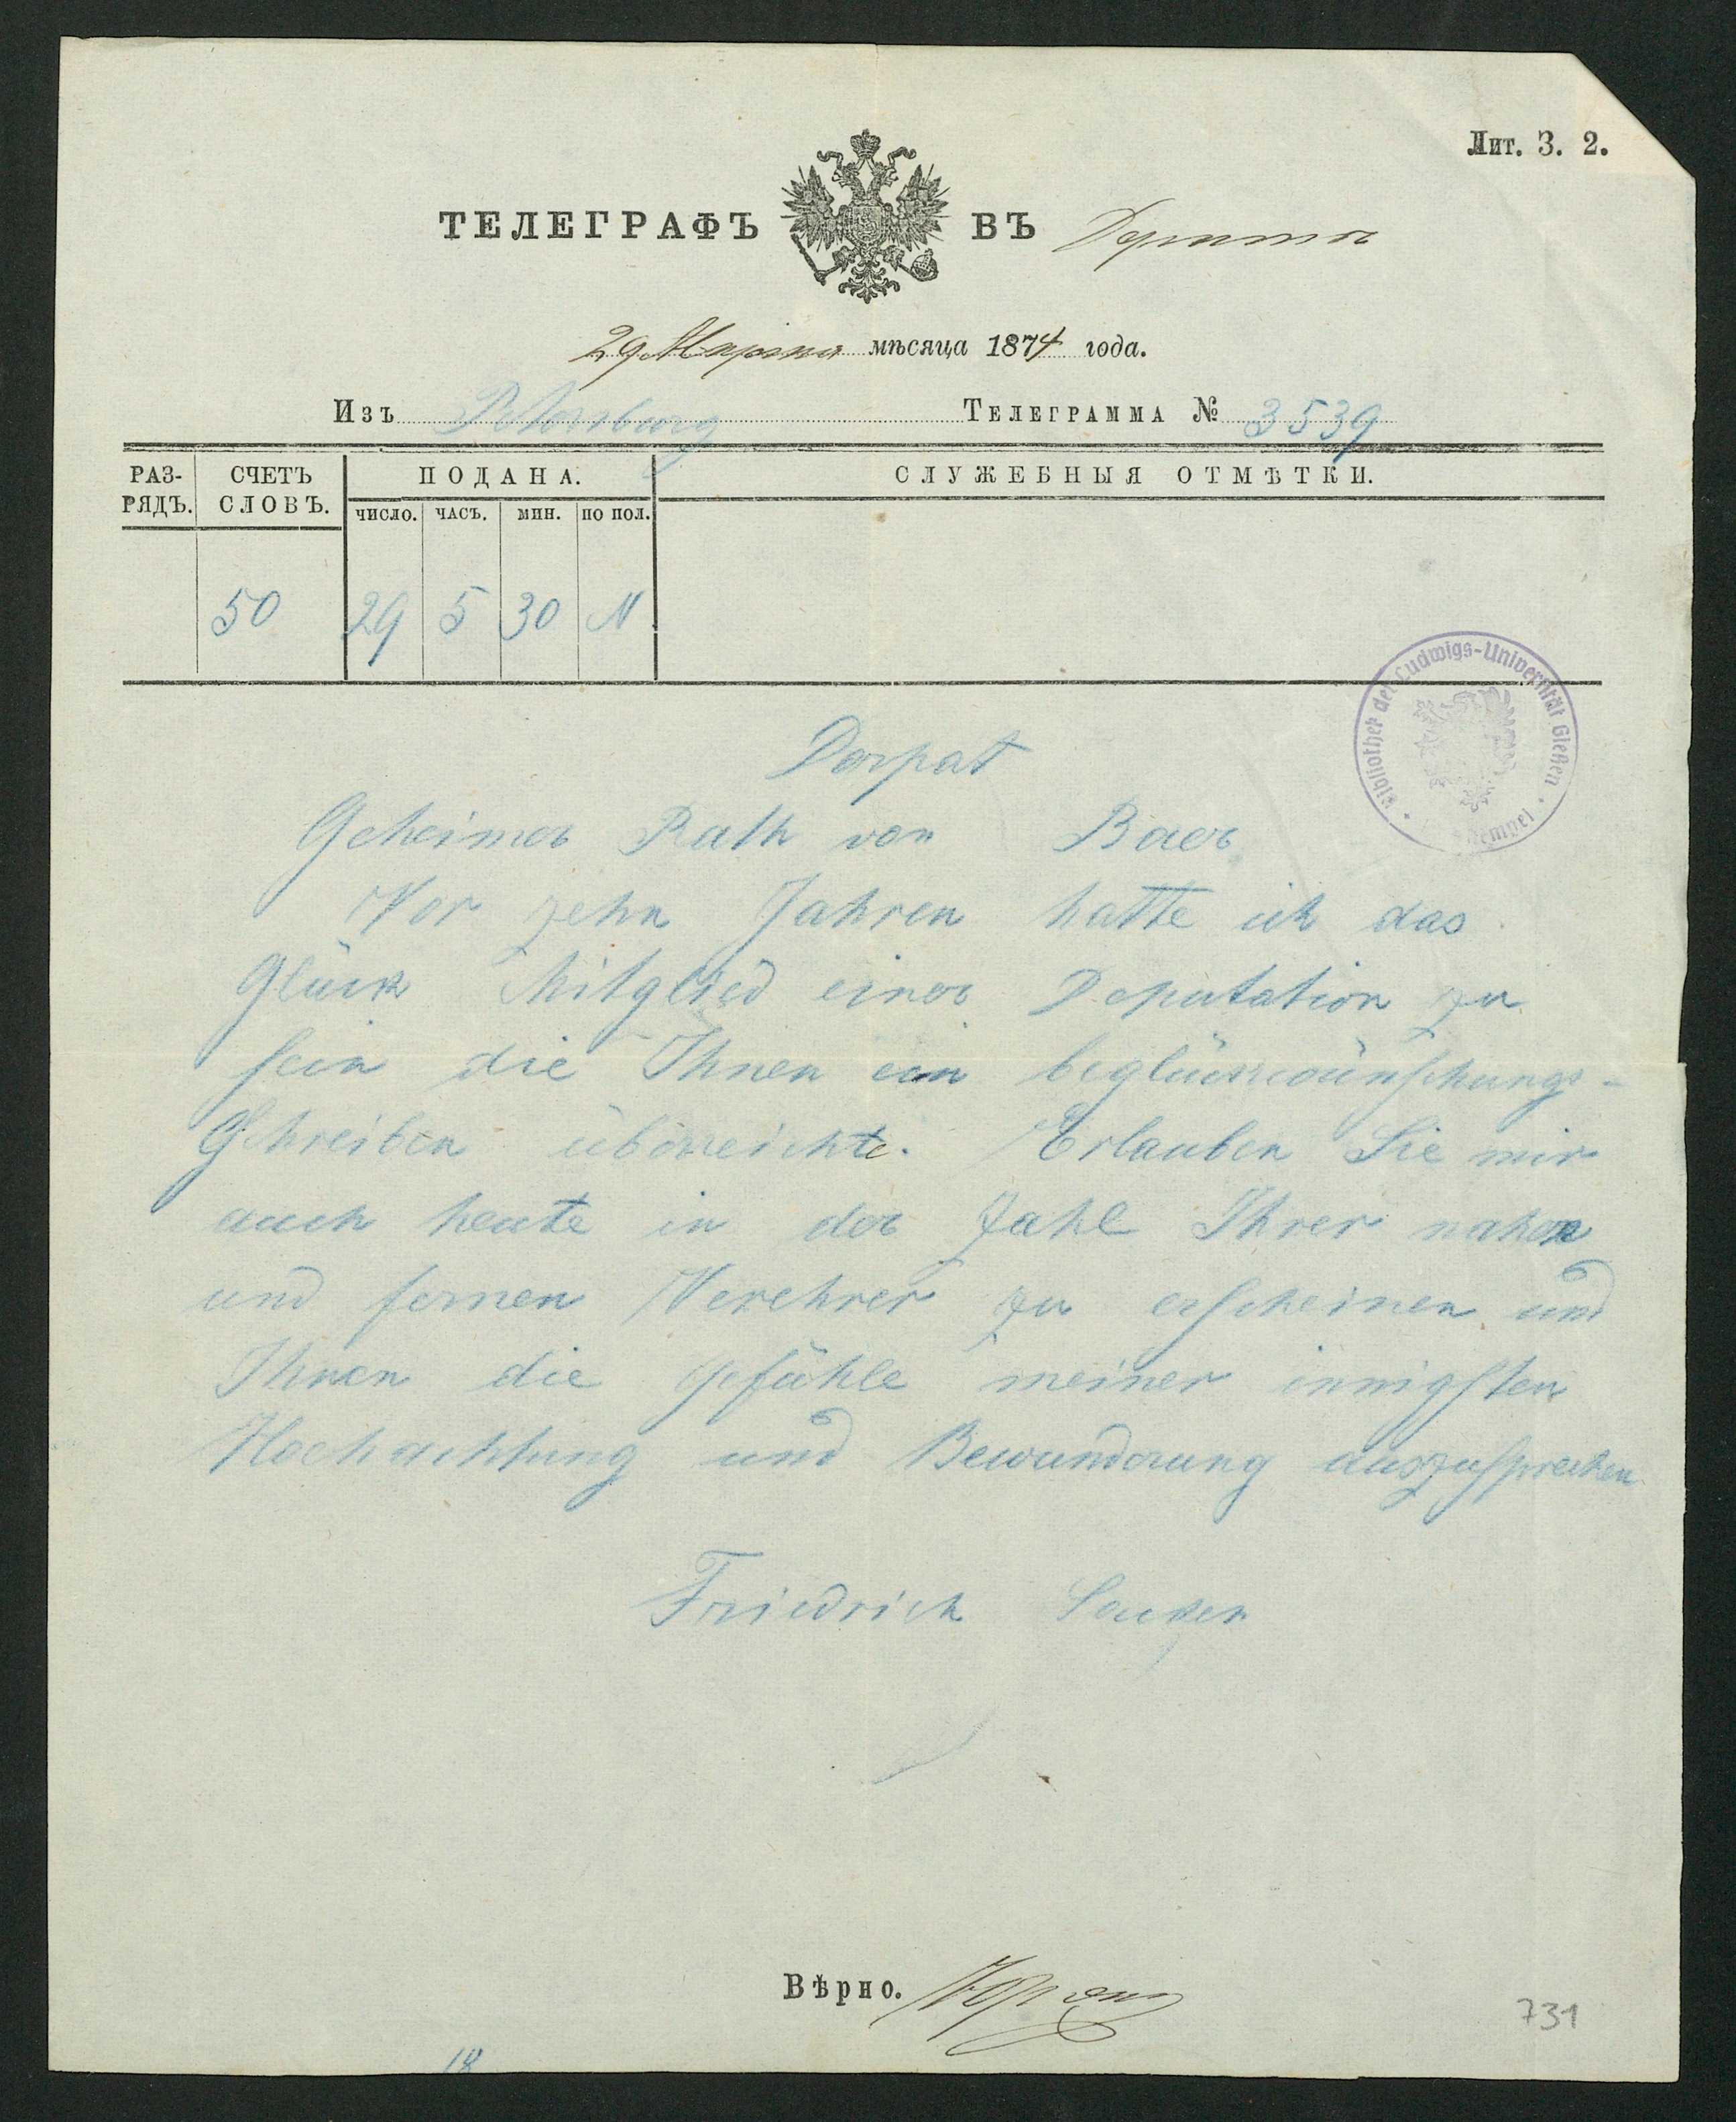 Лит. З. 2.
ТЕЛЕГРАФЪ ВЪ Дерптъ
29 Марта мѣсяца 1874 года.
Изъ Petersburg Телеграмма № 3539
РАЗРЯДЪ. СЧЕТЪ СЛОВЪ. ПОДАНА. СЛУЖЕБНЫЯ ОТМѢТКИ.
ЧИСЛО. ЧАСЪ. МИН. ПО ПОЛ.
50 29 5 30 N
Bibliothek der Ludwigs-Universität Gießen
Dorpat
Geheimer Rath von Baer
Vor zehn Jahren hatte ich das
Glück Mitglied einer Deputation zu
sein die Ihnen ein beglückwünschungs-
Schreiben überreichte. Erlauben Sie mir
auch heute in der Zahl Ihrer nahen
und fernen Verehrer zu erscheinen und
Ihnen die Gefühle meiner innigsten
Hochachtung und Bewunderung auszusprechen
Friedrich
Вѣрно.
731
18